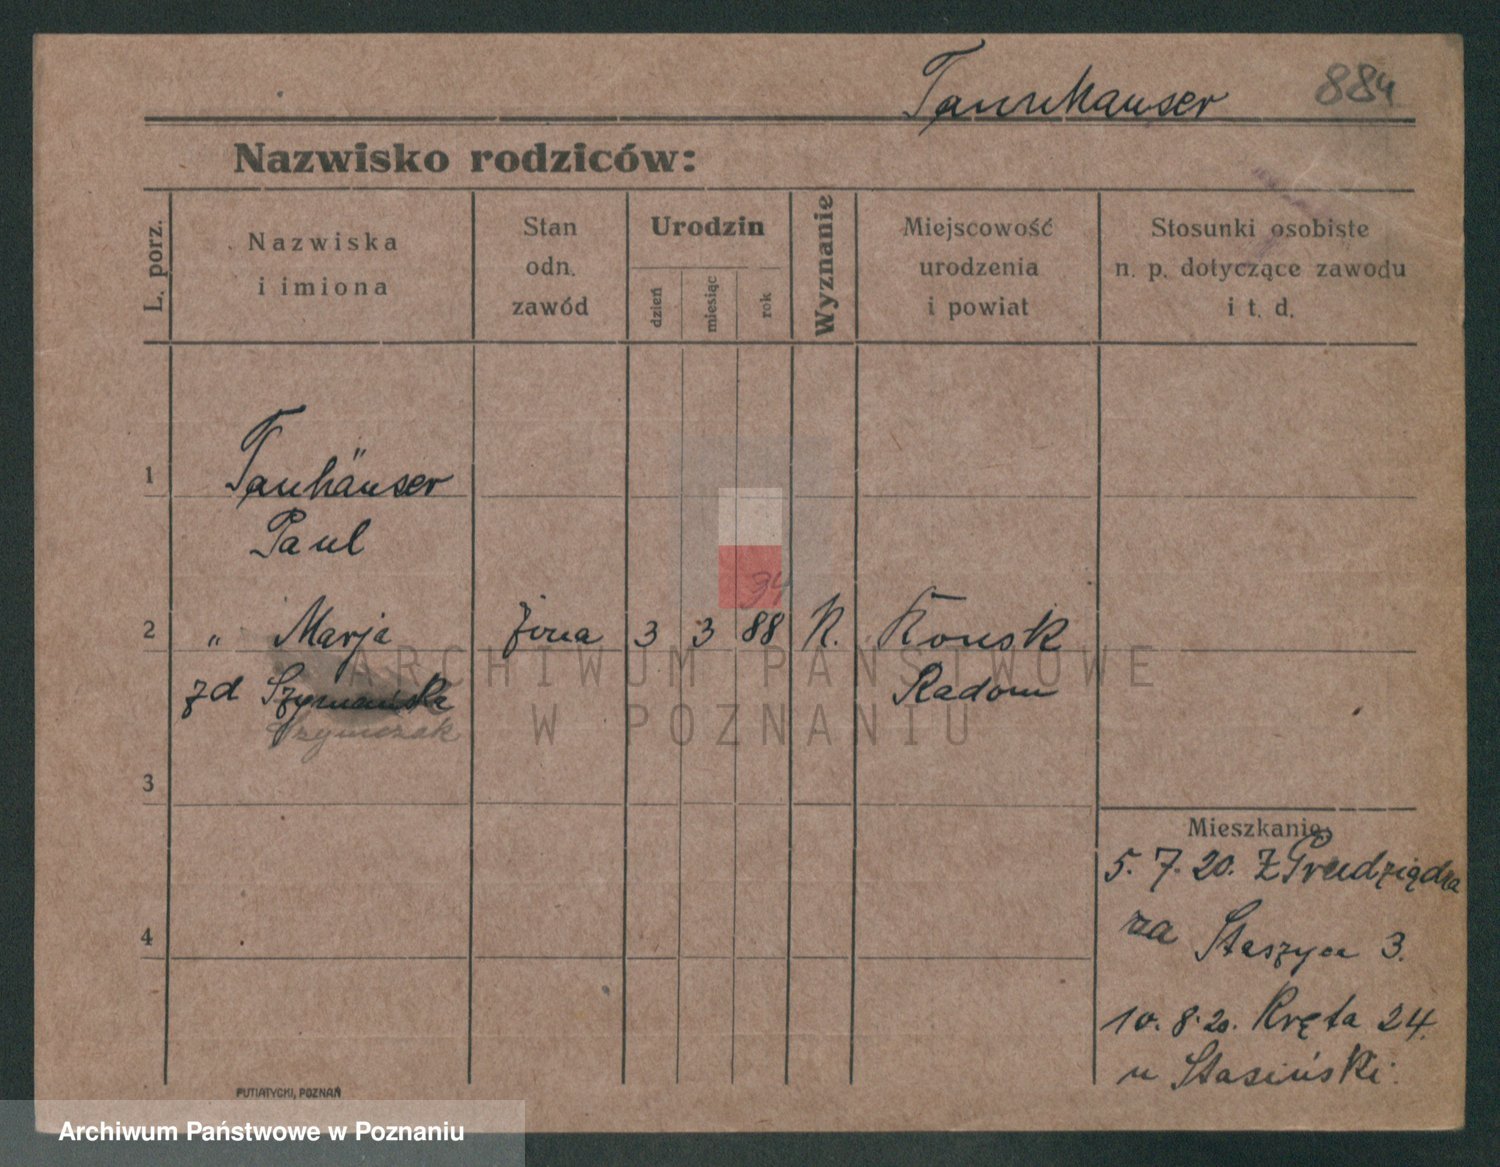 Tannhauser 884
Nazwisko rodziców:
L. porz.
Nazwiska
i imiona
Stan
odn.
zawód
Urodzin
dzień
miesiąc
rok
Wyznanie
Miejscowość
urodzenia
i powiat
Stosunki osobiste
n. p. dotyczące zawodu
i t. d.
1
Tanhäuser
Paul
34
2 " Marja żona 3 3 88 K. Konsk
zd Szymańska Radom
Szymczak
3
4
Mieszkanie:
5. 7. 20. z Grudziądza
na Staszyca 3.
10. 8. 20. Kręta 24.
u Stasiński.
PUTIATYCKI, POZNAŃ
ARCHIWUM PAŃSTWOWE
W POZNANIU
Archiwum Państwowe w Poznaniu